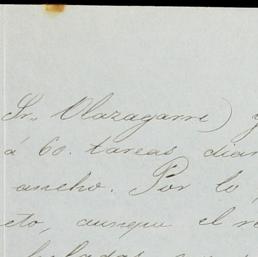 Sr. Olazagarre) y
á 60. tareas diar
ancho. Por lo
eto, aunque el re
heladas